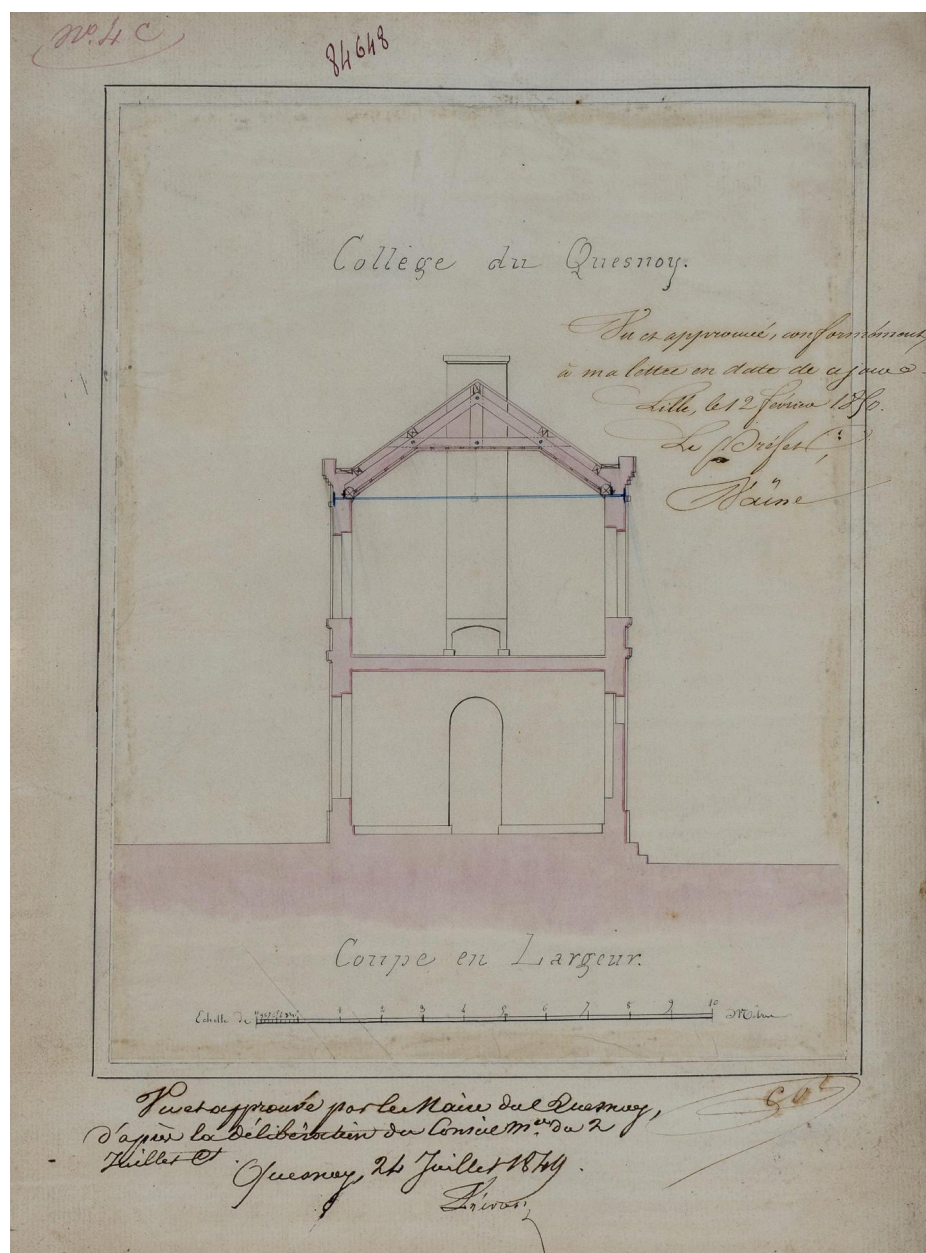 No. 4 C
84648
Collège du Quesnoy.
Vu et approuvé, conformément
à ma lettre en date de ce jour
Lille, le 12 février 1850.
Le Préfet,
Coupe en Largeur.
Echelle de
1 2 3 4 5 6 7 8 9 10 Mètres
Vu et approuvé par le Maire du Quesnoy,
d'après la délibération du Conseil mpal du 2
Juillet Ct
Quesnoy, 24 Juillet 1849.